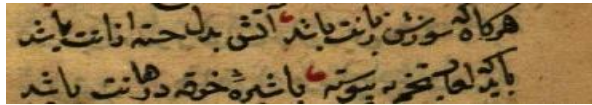 هرکاه که سوزش زبانت باشد آتش بدل خسته ازانت باشد
باید لعاب تخم به پیوسته با شیرهٔ خرفه در دهانت باشد